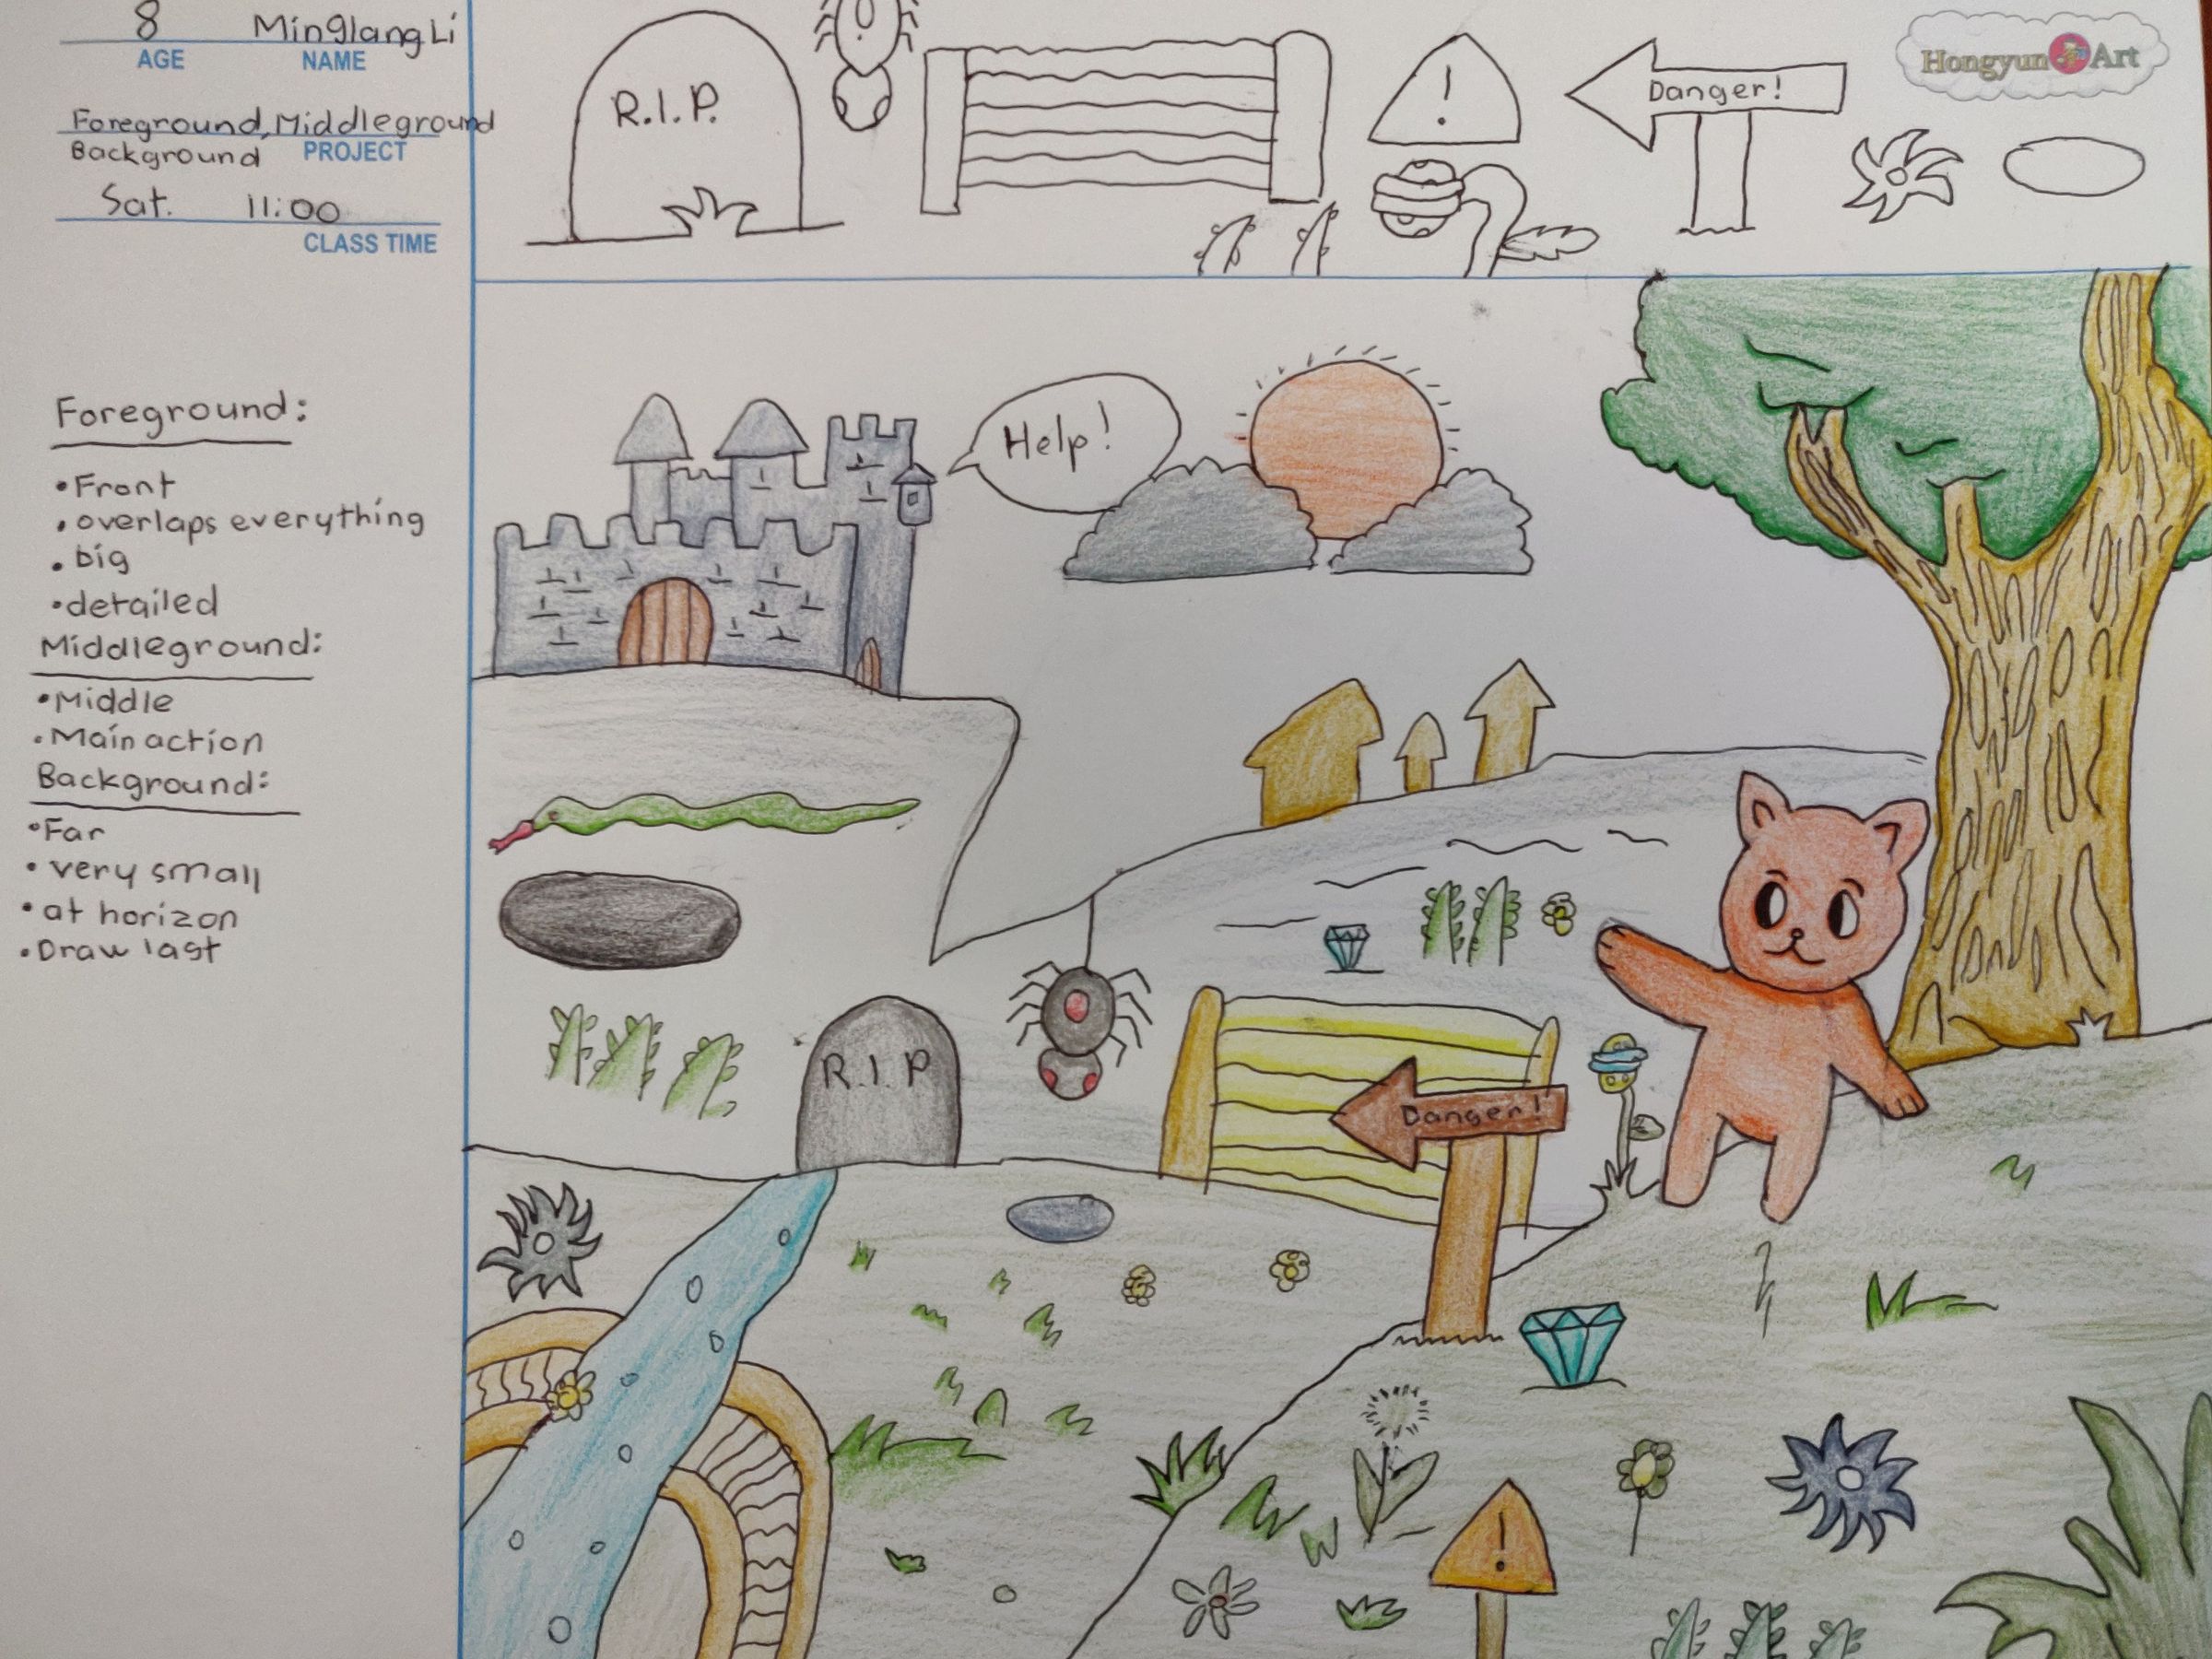 8 Minglang Li
AGE NAME
Foreground, Middleground
Background PROJECT
Sat. 11:00
CLASS TIME
R.I.P.
!
Danger!
Hongyun Art
Foreground:
•Front
•overlaps everything
•big
•detailed
Middleground:
•Middle
•Main action
Background:
•Far
•very small
•at horizon
•Draw last
Help!
R.I.P
Danger!
!